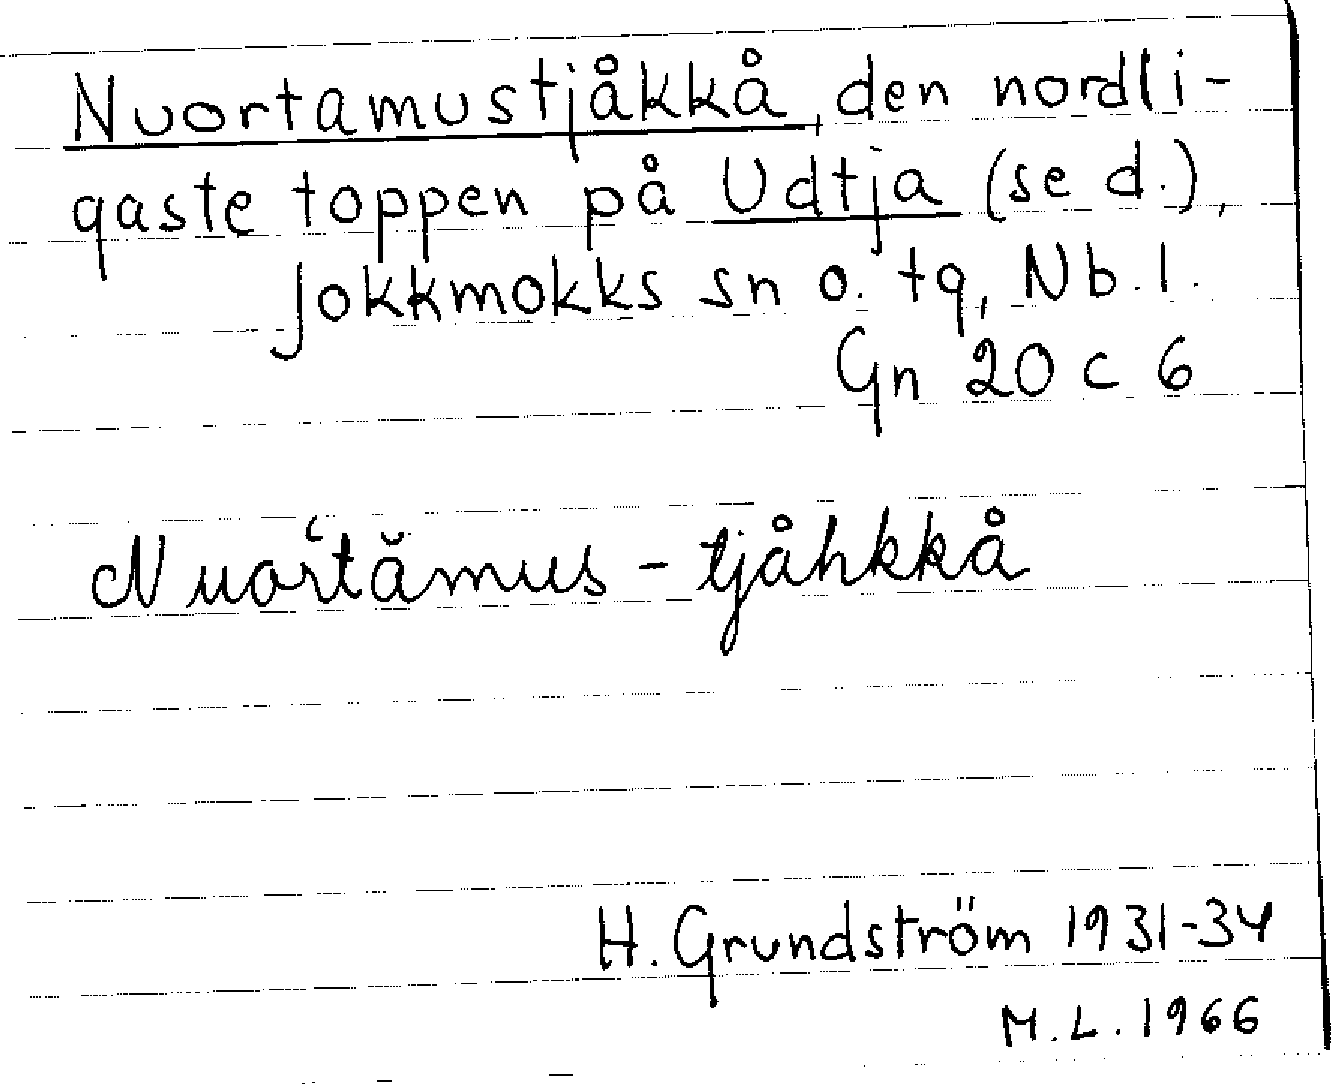 Nuortamustjåkkå, den nordli-
gaste toppen på Udtja (se d.),
Jokkmokks sn o. tg, Nb. l.
Gn 20 c 6
Nuorʻtămus-tjåhkkå
H. Grundström 1931-34
M. L. 1966